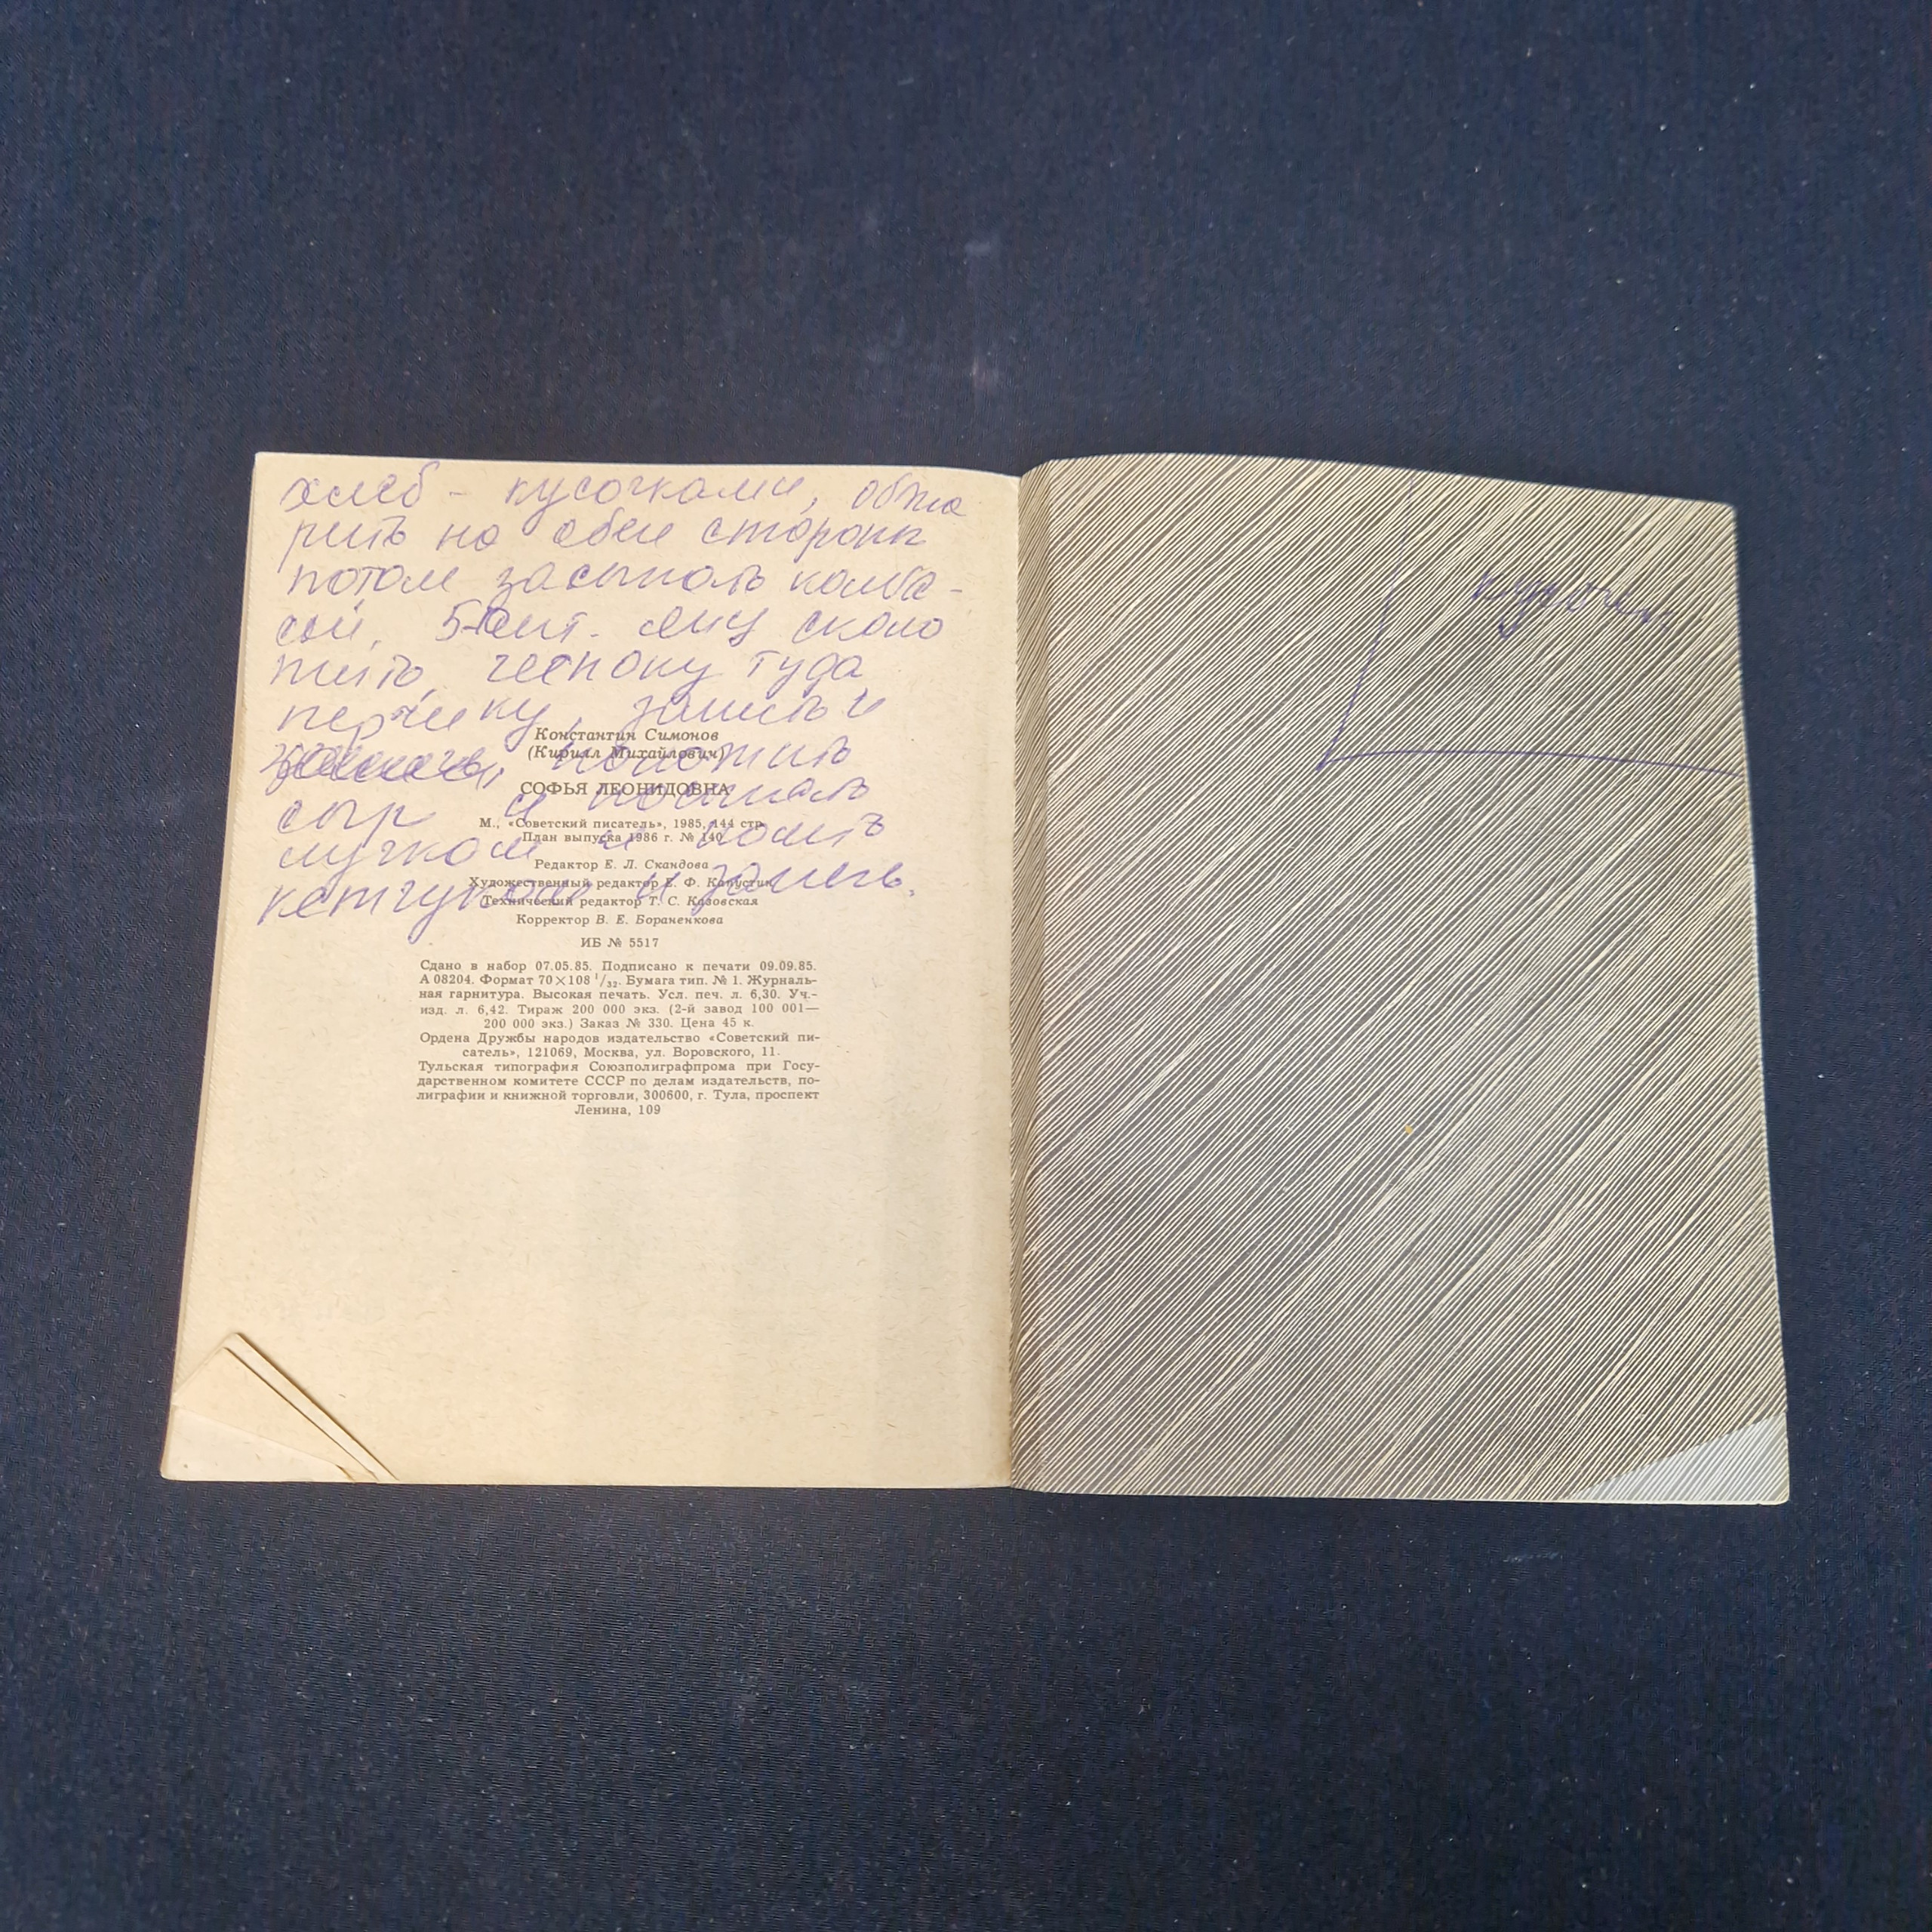 хлеб - кусочками, обжа
рить на обеи стороны
потом засыпать колба-
сой, 5-6 шт. яиц сколо
тить, чесноку туда
перчику, залить и
положить
сыр и посыпать
лучком и полить
кетчупом и запечь.
Константин Симонов
(Кирилл Михайлович)
СОФЬЯ ЛЕОНИДОВНА
М., «Советский писатель», 1985, 144 стр.
План выпуска 1986 г. № 140
Редактор Е. Л. Скандова
Художественный редактор Е. Ф. Капустин
Технический редактор Т. С. Казовская
Корректор В. Е. Бораненкова
ИБ № 5517
Сдано в набор 07.05.85. Подписано к печати 09.09.85.
А 08204. Формат 70×108 1/32. Бумага тип. № 1. Журналь-
ная гарнитура. Высокая печать. Усл. печ. л. 6,30. Уч.-
изд. л. 6,42. Тираж 200 000 экз. (2-й завод 100 001—
200 000 экз.) Заказ № 330. Цена 45 к.
Ордена Дружбы народов издательство «Советский пи-
сатель», 121069, Москва, ул. Воровского, 11.
Тульская типография Союзполиграфпрома при Госу-
дарственном комитете СССР по делам издательств, по-
лиграфии и книжной торговли, 300600, г. Тула, проспект
Ленина, 109